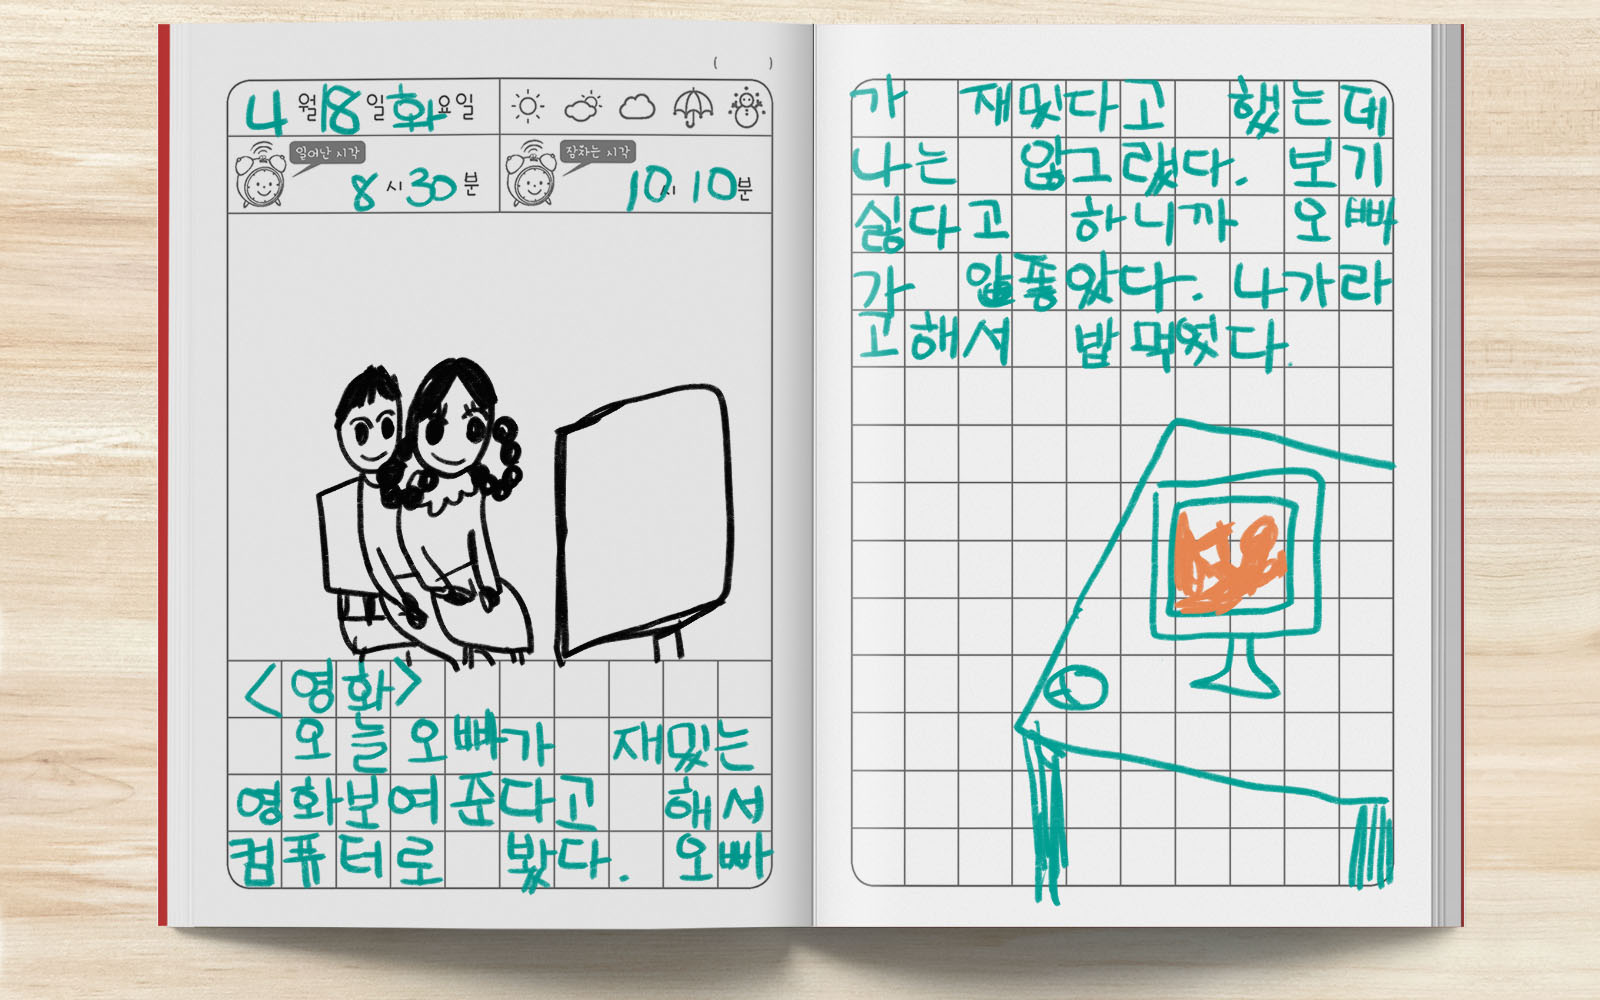 ( )
4월 18일 화요일
일어난 시각 잠자는 시각
8시 30분 10시 10분
<영화>
오늘 오빠가 재밌는
영화보여 준다고 해서
컴퓨터로 봤다. 오빠
가 재밌다고 했는데
나는 않그랬다. 보기
싫다고 하니까 오빠
가 다. 나가라
고해서 밥 먹었다.